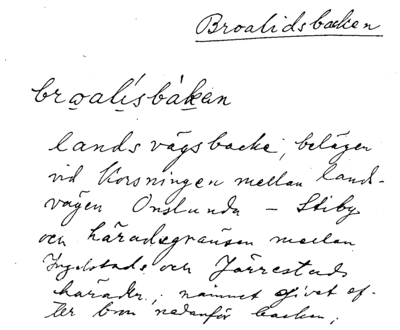 Broalidsbacken
broalísbákan
landsvägsbacke, belägen
vid Korsningen mellan lands-
vägen Onslunda – Stiby
och häradsgränsen mellan
Ingelstads och Järrestads
härader; namnet givet ef-
ter bron nedanför backen;